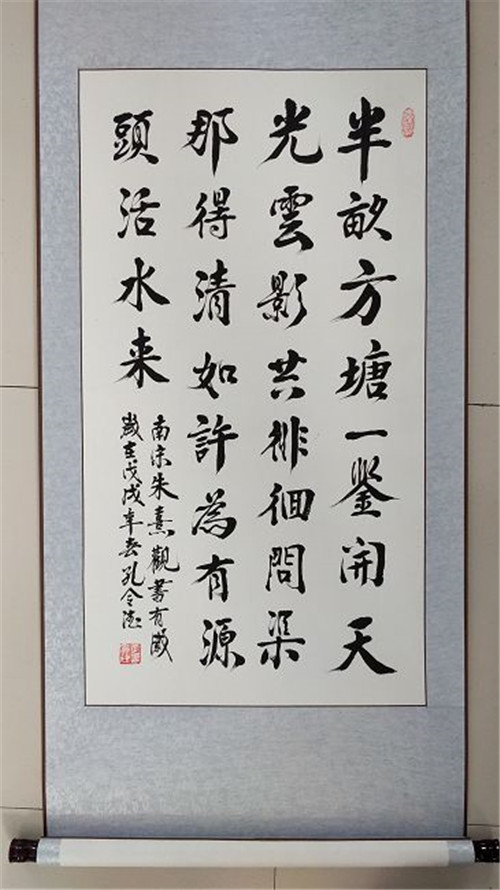 半畝方塘一鑒開天
光雲影共徘徊問渠
那得清如許為有源
頭活水来
南宋朱熹觀書有感
歲在戊戌年春孔令德